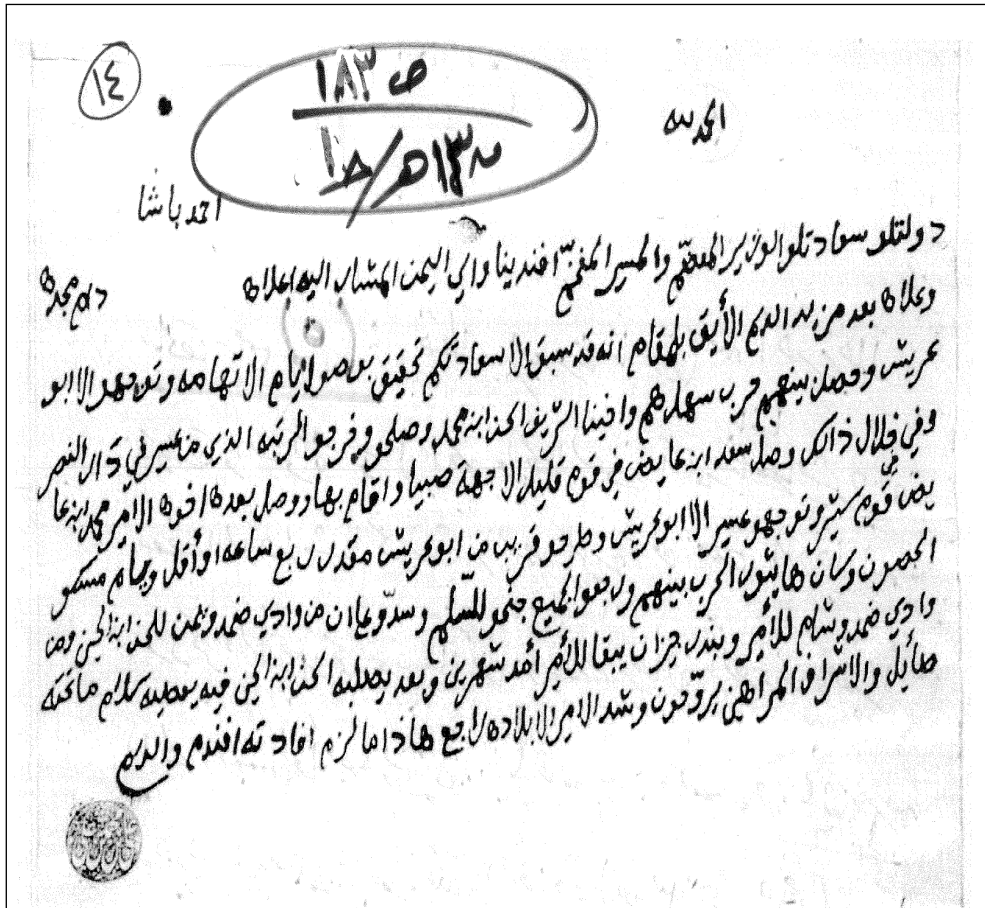 ١٤
ص ١٨٣
الحمد لله
احمد باشا
دولتلو سعادتلو الوزير المعظم والمشير المفخم افندينا والي اليمن المشار اليه اعلاه دام مجده
وعلاه بعد مزيد الدعاء الأليق بلمقام انه قد سبق الا سعادتكم تحقيق بوصول ايام الا تهامه وتوجهو الا ابو
عريش وحصل بينهم حرب سهله هم وافينا الشريف الحسن ابن محمد وصلحو وخرجو الرتبه الذي من عسير في دار النصر
وفي خلال ذالك وصل سعد ابن عايض في قوم قليل الا جهة صبيا واقام بها ووصل بعده اخوه الامير محمد ابن عا
يض في قوم كثير وتوجهو عسير الا ابو عريش وطرحو قريب من ابو عريش مقدر ربع ساعه او أقل ويام مسكو
الحصون وكان هايثور الحرب بينهم ورجعوا الجميع جنحو للسلم وسدو على ان من وادي ضمد ويمن للحسن ابن الحسين ومن
وادي ضمد وشام للأمير وبندر جيزان يبقا للأمير أمد شهرين وبعد يصلبه الحسن ابن الحسين فيه يعطيه سلام ما تحته
صايل والاشراف المراهين يروحون وشد الامير الا بلاده راجع هاذا ما لزم افادته افندم والدعاء